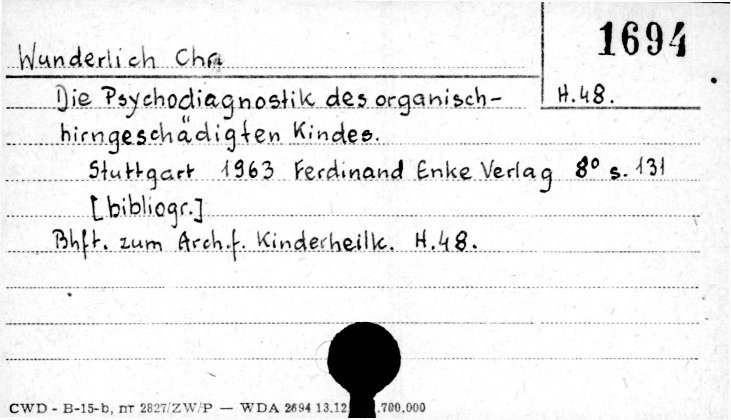 1694
Wunderlich Chr
H.48.
Die Psychodiagnostik des organisch-
hirngeschädigten Kindes.
Stuttgart 1963 Ferdinand Enke Verlag 8° s. 131
[bibliogr.]
Bhft. zum Arch.f. Kinderheilk. H.48.
CWD - B-15-b, nr 2827/ZW/P — WDA 2694 13.12 .700.000